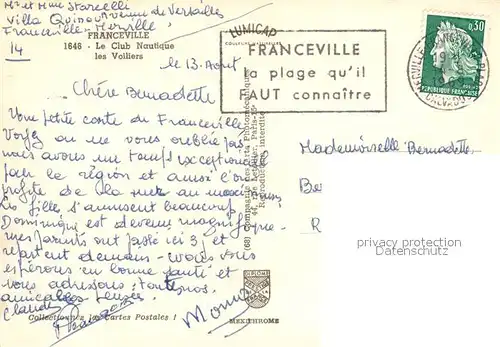 Mr et Mme Storcelli
Villa Quinou avenue de Versailles
Franceville - Merville
14
FRANCEVILLE
1646 - Le Club Nautique
les Voiliers
LUMICAP
FRANCEVILLE
la plage qu'il
FAUT connaître
0,30
REPUBLIQUE FRANCAISE
CALVADOS
le 13 Août
Chère Bernadette
Une petite carte de Franceville
Vous on ne vous oublie pas
nous avons un temps exceptionnel
pour la région et aussi l'on
profite de la mer au maximum
Les filles s'amusent beaucoup
Dominique est devenu magnifique
mes parents ont passé ici 3 j et
repartent demain - nous vous
espérons en bonne santé et
vous adressons toutes nos
amicales pensées
Claude
Mademoiselle Bernadette
Be
R
(68) Compagnie des Arts Photomécaniques
44, rue Letellier, Paris-15e
Reproduction interdite
privacy protection
Datenschutz
DIPLOME
MEXICHROME
Collectionnez les Cartes Postales !